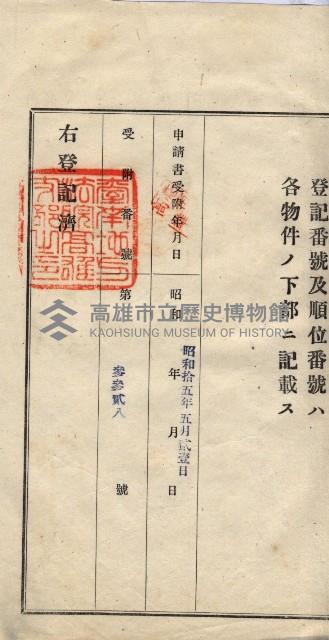 登記番號及順位番號ハ
各物件ノ下部ニ記載ス
申請書受附年月日
昭和 年 月 日
昭和拾五年五月貳壹日
受附番號
第 號
參參貳八
右登記濟
高雄市立歷史博物館
KAOHSIUNG MUSEUM OF HISTORY